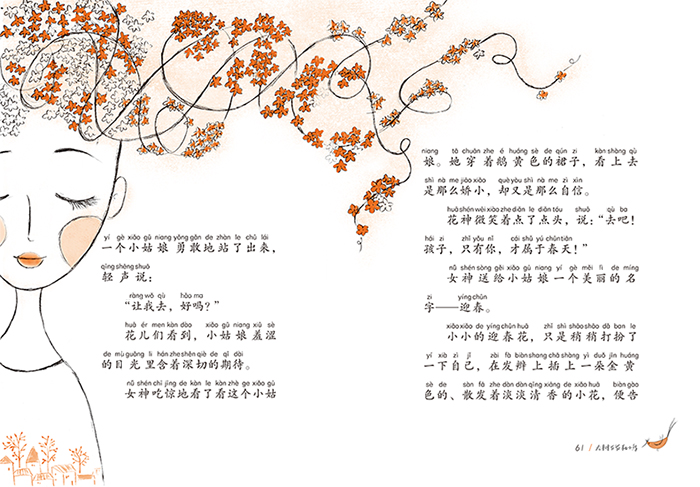 yí gè xiǎo gū niang yǒng gǎn de zhàn le chū lái
一个小姑娘勇敢地站了出来，
qīng shēng shuō
轻声说：
ràng wǒ qù hǎo ma
“让我去，好吗？”
huā ér men kàn dào xiǎo gū niang xiū sè
花儿们看到，小姑娘羞涩
de mù guāng lǐ hán zhe shēn qiè de qī dài
的目光里含着深切的期待。
nǚ shén chī jīng de kàn le kàn zhè ge xiǎo gū
女神吃惊地看了看这个小姑
niang tā chuān zhe é huáng sè de qún zi kàn shàng qù
娘。她穿着鹅黄色的裙子，看上去
shì nà me jiāo xiǎo què yòu shì nà me zì xìn
是那么娇小，却又是那么自信。
huā shén wēi xiào zhe diǎn le diǎn tóu shuō qù ba
花神微笑着点了点头，说：“去吧！
hái zi zhǐ yǒu nǐ cái shǔ yú chūn tiān
孩子，只有你，才属于春天！”
nǚ shén sòng gěi xiǎo gū niang yí gè měi lì de míng
女神送给小姑娘一个美丽的名
zi yíng chūn
字——迎春。
xiǎo xiǎo de yíng chūn huā zhǐ shì shāo shāo dǎ ban le
小小的迎春花，只是稍稍打扮了
yí xià zì jǐ zài fà biàn shang chā shàng yì duǒ jīn huáng
一下自己，在发辫上插上一朵金黄
sè de sàn fā zhe dàn dàn qīng xiāng de xiǎo huā biàn gào
色的、散发着淡淡清香的小花，便告
61 /